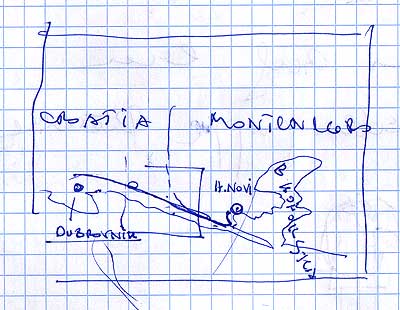 CROATIA
MONTENEGRO
H. NOVI
DUBROVNIK